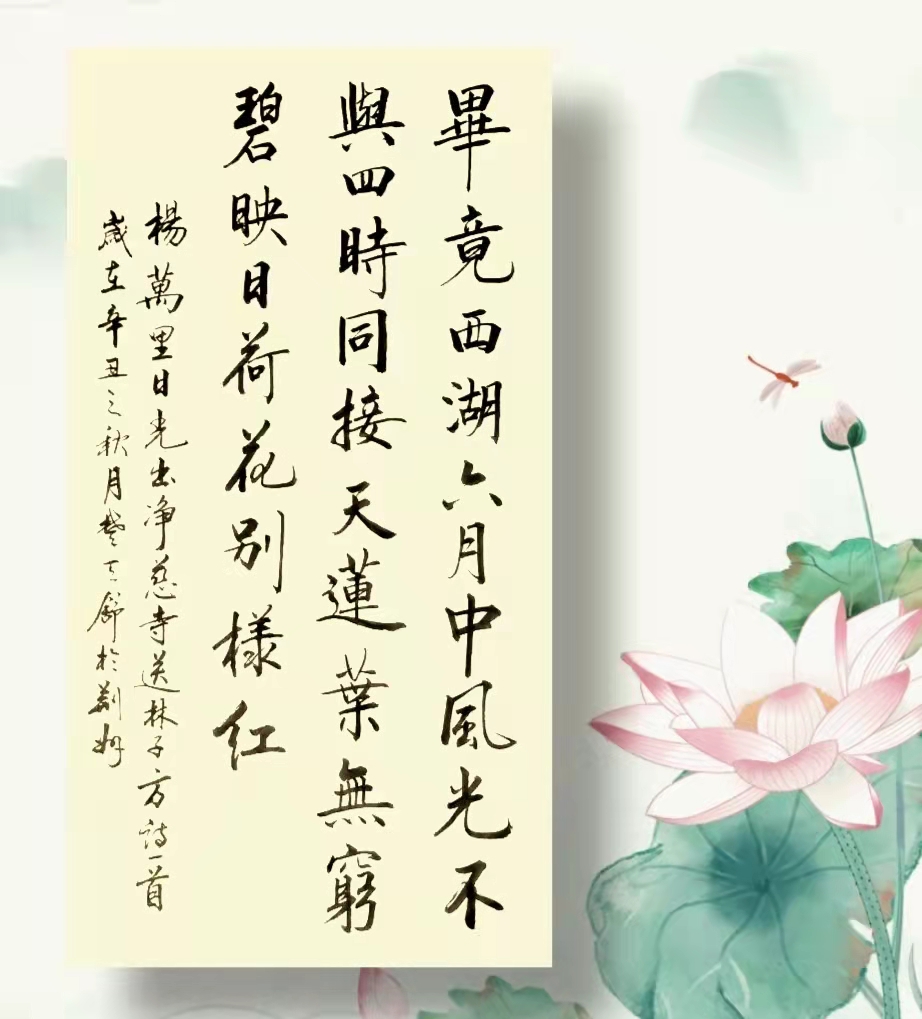 畢竟西湖六月中風光不
與四時同接天蓮葉無窮
碧映日荷花別樣红
楊萬里日光出净慈寺送林子方诗一首
歲在辛丑之秋月於荆